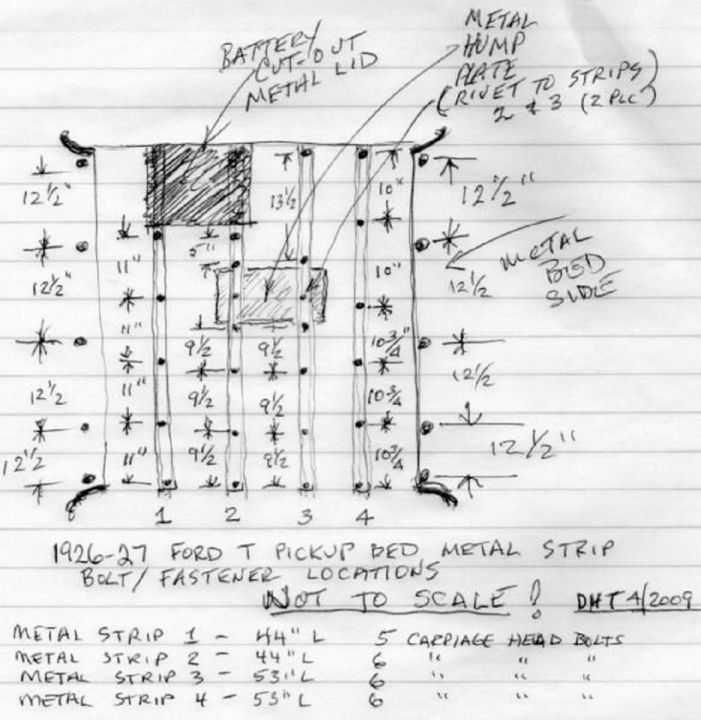 BATTERY
CUT-OUT
METAL LID
METAL
HUMP
PLATE
(RIVET TO STRIPS
2 & 3 (2 PLC)
12 1/2"
12 1/2"
12 1/2
12 1/2
11"
11"
11"
11"
5"
9 1/2
9 1/2
9 1/2
13 1/2
9 1/2
9 1/2
9 1/2
10"
10"
10 3/4"
10 3/4
10 3/4
12 1/2"
12 1/2
12 1/2
12 1/2"
METAL
BED
SIDE
1 2 3 4
1926-27 FORD T PICKUP BED METAL STRIP
BOLT/FASTENER LOCATIONS
NOT TO SCALE! DHT 4/2009
METAL STRIP 1 - 44" L 5 CARRIAGE HEAD BOLTS
METAL STRIP 2 - 44" L 6 " " "
METAL STRIP 3 - 53" L 6 " " "
METAL STRIP 4 - 53" L 6 " " "